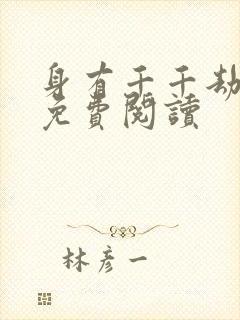 身有千千劫
免費閱讀
林彥一